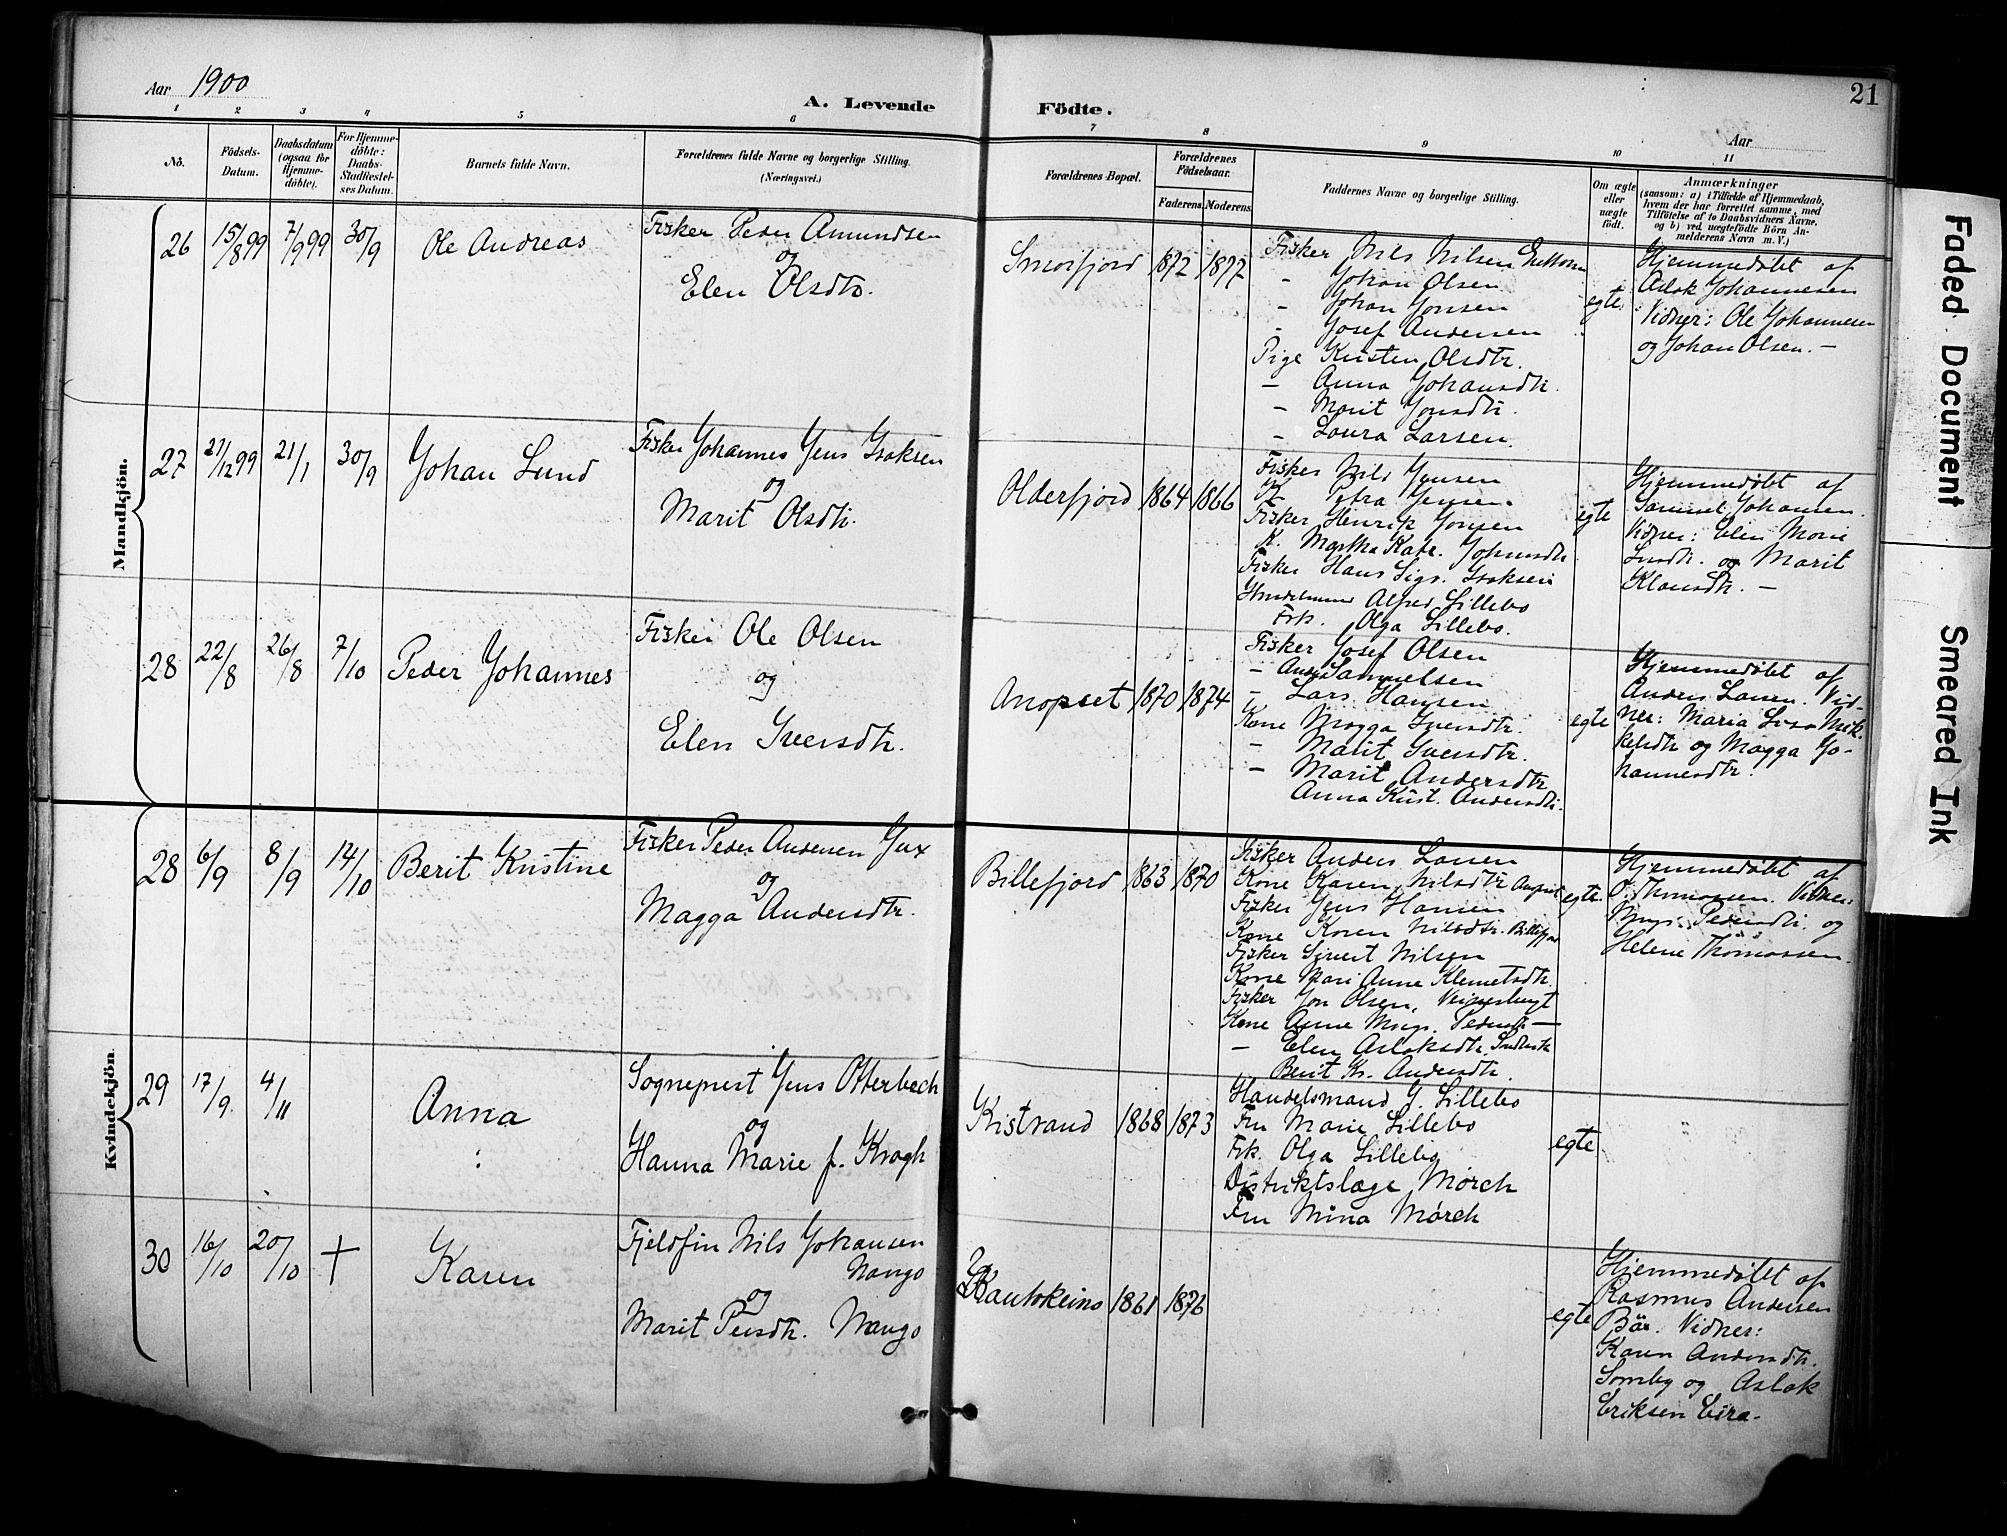 Aar 1900
A. Levende Födte.
21
Aar
1 2 3 4 5 6 7 8 9 10 11
No.
Födsels-
Datum.
Daabsdatum
(ogsaa for
Hjemme-
döbte).
For Hjemme-
döbte:
Daabs-
Stadfæstel-
ses Datum.
Barnets fulde Navn.
Forældrenes fulde Navne og borgerlige Stilling.
(Næringsvei.)
Forældrenes Bopæl.
Forældrenes
Födselsaar.
Faderens Moderens
Faddernes Navne og borgerlige Stilling.
Om ægte
eller
uægte
födt.
Anmærkninger
(saasom: a) i Tilfælde af Hjemmedaab,
hvem der har forrettet samme, med
Tilföielse af to Daabsvidners Navne,
og b) ved uægtefödte Börn An-
melderens Navn m. V.)
Mandkjön.
26 15/8 99 7/9 99 30/9 Ole Andreas
Fisker Peder Amundsen
og
Elen Olsdtr.
Smørfjord 1872 1877
Fisker Nils Nilsen
- Johan Olsen
- Johan Jonsen
- Josef Andersen
Pige Kristen Olsdtr.
- Anna Johansdtr.
- Marit Jonsdtr.
- Laura Larsen.
egte.
Hjemmedøbt af
Aslak Johannesen
Vidner: Ole Johannesen
og Johan Olsen. -
27 21/12 99 21/1 30/9 Johan Lund
Fisker Johannes Jens Isaksen
og
Marit Olsdtr.
Olderfjord 1864 1866
Fisker Nils Jensen
K. Petra Jensen
Fisker Henrik Jonsen
K. Martha Katr. Johansdtr.
Fisker Hans Sigv. Isaksen
Alfred Lillebo
Frk. Olga Lillebo.
egte
Hjemmedøbt af
Samuel Johansen.
Vidner: Elen Marie
og Marit
Klausdtr. -
28 22/8 26/8 7/10 Peder Johannes
Fisker Ole Olsen
og
Elen Iversdtr.
Anopset 1870 1874
Fisker Josef Olsen
- Anders Samuelsen
- Lars Hansen
Kone Magga Iversdtr.
- Marit Iversdtr.
- Marit Andersdtr
Anna Krist. Andersdtr.
egte
Hjemmedøbt af
Anders Larsen. Vid-
ner: Maria Lisa Mik-
kelsdtr og Magga Jo-
hannesdtr.
Kvindekjön.
28 6/9 8/9 14/10 Berit Kristine
Fisker Peder Andersen Jux
og
Magga Andersdtr.
Billefjord 1863 1870
Fisker Anders Larsen
Kone Karen Nilsdtr Anopset
Fisker Jens Hansen
Kone Karen Nilsdtr. Billefjord
Fisker Sivert Nilsen
Kone Mari Anne Klemetsdtr.
Fisker Jon Olsen,
Kone Anne Mrgr. Pedersdtr -
- Elen Aslaksdtr.
Berit Kr. Andersdtr.
egte.
Hjemmedøbt af
O. Thomassen. Vidner:
Mrgr. Pedersdtr. og
Helene Thomassen.
29 17/9 4/11 Anna
Sogneprest Jens Otterbech
og
Hanna Marie f. Krogh
Kistrand 1868 1873
Handelsmand J. Lillebo
Fru Marie Lillebo
Frk. Olga Lillebo
Distriktslæge Mørch
Fru Mina Mørch
egte
30 16/10 20/10 + Karen
Fjeldfin Nils Johansen
Nango
og
Marit Persdtr. Nango
Kautokeino 1861 1876
egte
Hjemmedøbt af
Rasmus Andersen
Bær. Vidner:
Karen Andersdtr.
Somby og Aslak
Eriksen Eira.
Faded Document
Smeared Ink